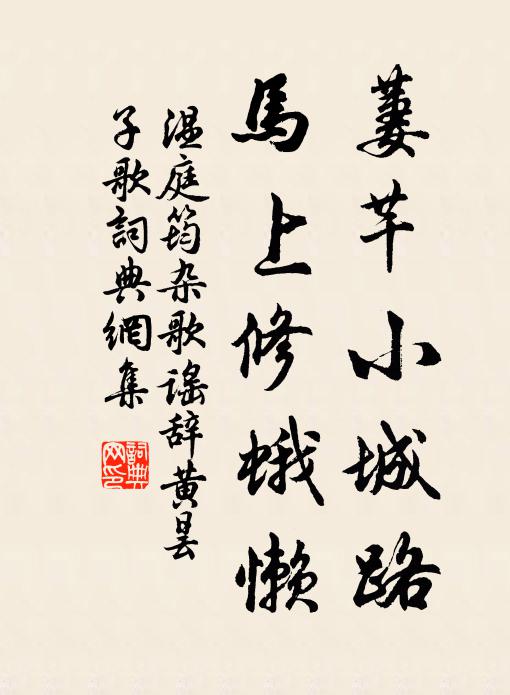 萋芊小城路
馬上修蛾懶
温庭筠杂歌谣辞黄昙
子歌詞典網集
詞典
网印